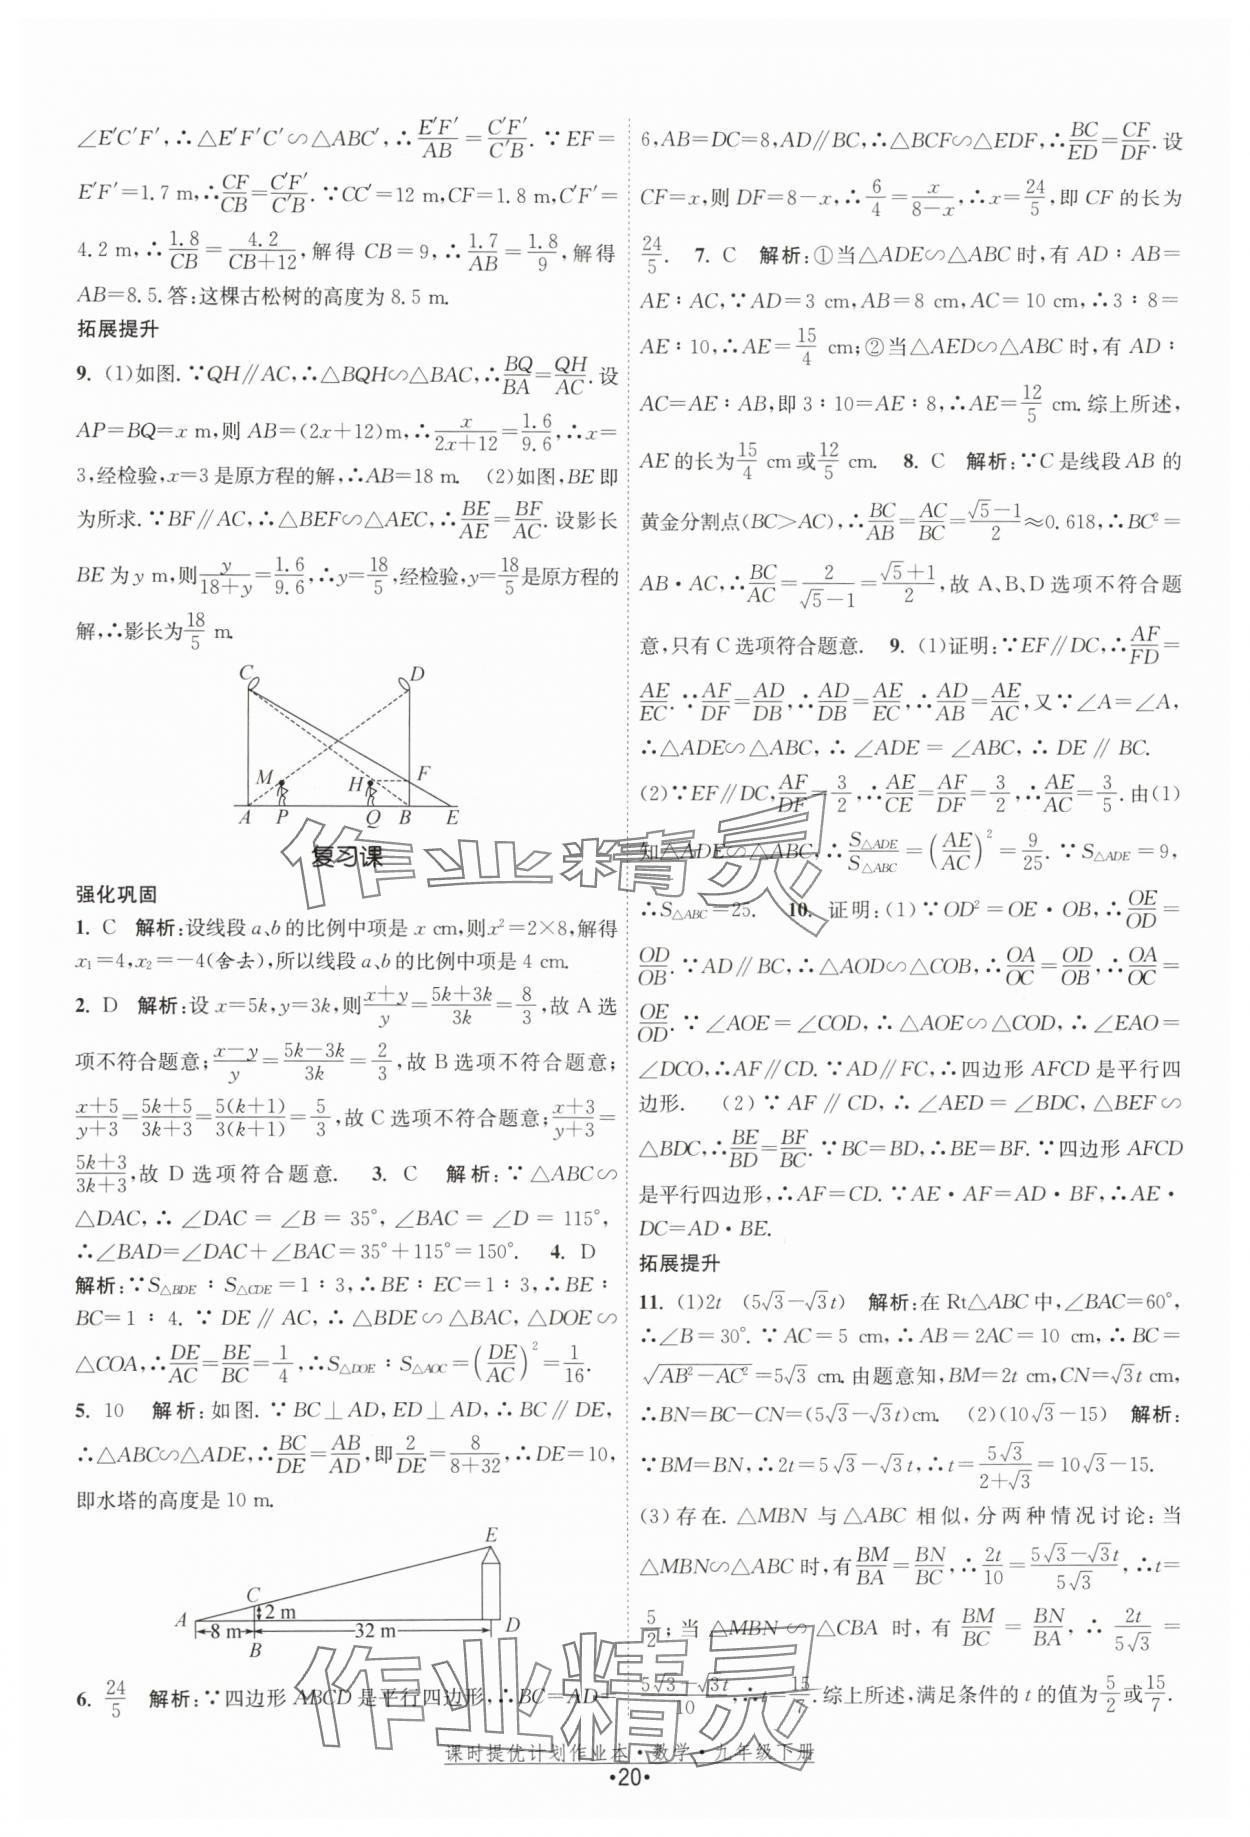 ∠E′C′F′,∴△E′F′C′∽△ABC′,∴E′F′/AB=C′F′/C′B.∵EF=
E′F′=1.7 m,∴CF/CB=C′F′/C′B.∵CC′=12 m,CF=1.8 m,C′F′=
4.2 m,∴1.8/CB=4.2/(CB+12),解得 CB=9,∴1.7/AB=1.8/9,解得
AB=8.5.答:这棵古松树的高度为8.5 m.
拓展提升
9. (1)如图.∵QH∥AC,∴△BQH∽△BAC,∴BQ/BA=QH/AC.设
AP=BQ=x m,则 AB=(2x+12)m,∴x/(2x+12)=1.6/9.6,∴x=
3,经检验,x=3是原方程的解,∴AB=18 m. (2)如图,BE即
为所求.∵BF∥AC,∴△BEF∽△AEC,∴BE/AE=BF/AC.设影长
BE为y m,则y/(18+y)=1.6/9.6,∴y=18/5,经检验,y=18/5是原方程的
解,∴影长为18/5 m.
C D
M H F
A P Q B E
复习课
强化巩固
1. C 解析:设线段a、b的比例中项是x cm,则x²=2×8,解得
x₁=4,x₂=-4(舍去),所以线段a、b的比例中项是4 cm.
2. D 解析:设x=5k,y=3k,则(x+y)/y=(5k+3k)/3k=8/3,故A选
项不符合题意;(x-y)/y=(5k-3k)/3k=2/3,故B选项不符合题意;
(x+5)/(y+3)=(5k+5)/(3k+3)=5(k+1)/3(k+1)=5/3,故C选项不符合题意;(x+3)/(y+3)=
(5k+3)/(3k+3),故D选项符合题意. 3. C 解析:∵△ABC∽
△DAC,∴∠DAC=∠B=35°,∠BAC=∠D=115°,
∴∠BAD=∠DAC+∠BAC=35°+115°=150°. 4. D
解析:∵S△BDE∶S△CDE=1∶3,∴BE∶EC=1∶3,∴BE∶
BC=1∶4.∵DE∥AC,∴△BDE∽△BAC,△DOE∽
△COA,∴DE/AC=BE/BC=1/4,∴S△DOE∶S△AOC=(DE/AC)²=1/16.
5. 10 解析:如图.∵BC⊥AD,ED⊥AD,∴BC∥DE,
∴△ABC∽△ADE,∴BC/DE=AB/AD,即2/DE=8/(8+32),∴DE=10,
即水塔的高度是10 m.
E
C
2 m
A D
8 m 32 m
B
6. 24/5 解析:∵四边形ABCD是平行四边形,∴BC=AD=
6,AB=DC=8,AD∥BC,∴△BCF∽△EDF,∴BC/ED=CF/DF.设
CF=x,则DF=8-x,∴6/4=x/(8-x),∴x=24/5,即CF的长为
24/5. 7. C 解析:①当△ADE∽△ABC时,有AD∶AB=
AE∶AC,∵AD=3 cm,AB=8 cm,AC=10 cm,∴3∶8=
AE∶10,∴AE=15/4 cm;②当△AED∽△ABC时,有AD∶
AC=AE∶AB,即3∶10=AE∶8,∴AE=12/5 cm.综上所述,
AE的长为15/4 cm或12/5 cm. 8. C 解析:∵C是线段AB的
黄金分割点(BC>AC),∴BC/AB=AC/BC=(√5-1)/2≈0.618,∴BC²=
AB·AC,∴BC/AC=2/(√5-1)=(√5+1)/2,故A、B、D选项不符合题
意,只有C选项符合题意. 9. (1)证明:∵EF∥DC,∴AF/FD=
AE/EC.∵AF/DF=AD/DB,∴AD/DB=AE/EC,∴AD/AB=AE/AC,又∵∠A=∠A,
∴△ADE∽△ABC,∴∠ADE=∠ABC,∴DE∥BC.
(2)∵EF∥DC,AF/DF=3/2,∴AE/CE=AF/DF=3/2,∴AE/AC=3/5.由(1)
知△ADE∽△ABC,∴S△ADE/S△ABC=(AE/AC)²=9/25.∵S△ADE=9,
∴S△ABC=25. 10. 证明:(1)∵OD²=OE·OB,∴OE/OD=
OD/OB.∵AD∥BC,∴△AOD∽△COB,∴OA/OC=OD/OB,∴OA/OC=
OE/OD.∵∠AOE=∠COD,∴△AOE∽△COD,∴∠EAO=
∠DCO,∴AF∥CD.∵AD∥FC,∴四边形AFCD是平行四
边形. (2)∵AF∥CD,∴∠AED=∠BDC,△BEF∽
△BDC,∴BE/BD=BF/BC.∵BC=BD,∴BE=BF.∵四边形AFCD
是平行四边形,∴AF=CD.∵AE·AF=AD·BF,∴AE·
DC=AD·BE.
拓展提升
11. (1)2t (5√3-√3t) 解析:在Rt△ABC中,∠BAC=60°,
∴∠B=30°.∵AC=5 cm,∴AB=2AC=10 cm,∴BC=
√(AB²-AC²)=5√3 cm.由题意知,BM=2t cm,CN=√3t cm,
∴BN=BC-CN=(5√3-√3t)cm. (2)(10√3-15) 解析:
∵BM=BN,∴2t=5√3-√3t,∴t=5√3/(2+√3)=10√3-15.
(3)存在.△MBN与△ABC相似,分两种情况讨论:当
△MBN∽△ABC时,有BM/BA=BN/BC,∴2t/10=(5√3-√3t)/5√3,∴t=
5/2;当△MBN∽△CBA时,有BM/BC=BN/BA,∴2t/5√3=
(5√3-√3t)/10,∴t=15/7.综上所述,满足条件的t的值为5/2或15/7.
作业精灵
作业精灵
课时提优计划作业本·数学·九年级下册
·20·